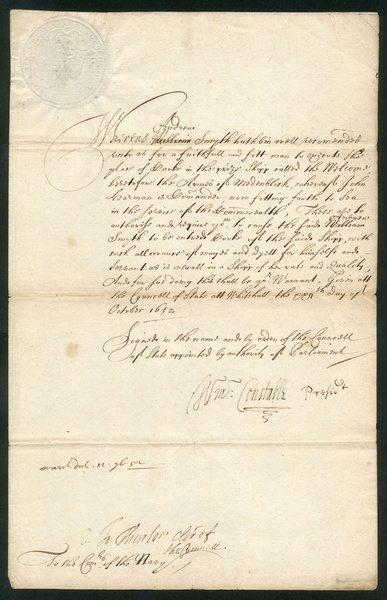 Andrew
Whereas William Smyth hath bin well recomended
unto us for a faithfull and fitt man to execute the
place of Cooke in the prize Shipp called the Welcome
heretofore the Armes of Medenblick, whereof John
Harman is Comander now fitting forth to Sea
in the service of the Commonwealth, These are to
Andrew
authorise and require you to cause the said William
Smyth to be entred Cooke of the said Shipp, with
such allowance of wages and dyett for himselfe and
servant as is usuall in a Shipp of her rate and quality,
And for soe doing this shall be yor Warrant. Given att
the Councell of State att Whitehall the day of
October 1652
Signed in the name and by order of the Councell
of State appointed by authority of Parliament
Wm: Constable Presidt
warr dat. 12. 52
To the Comrs of the Navy
Jo Thurloe Cler of
the Councell.